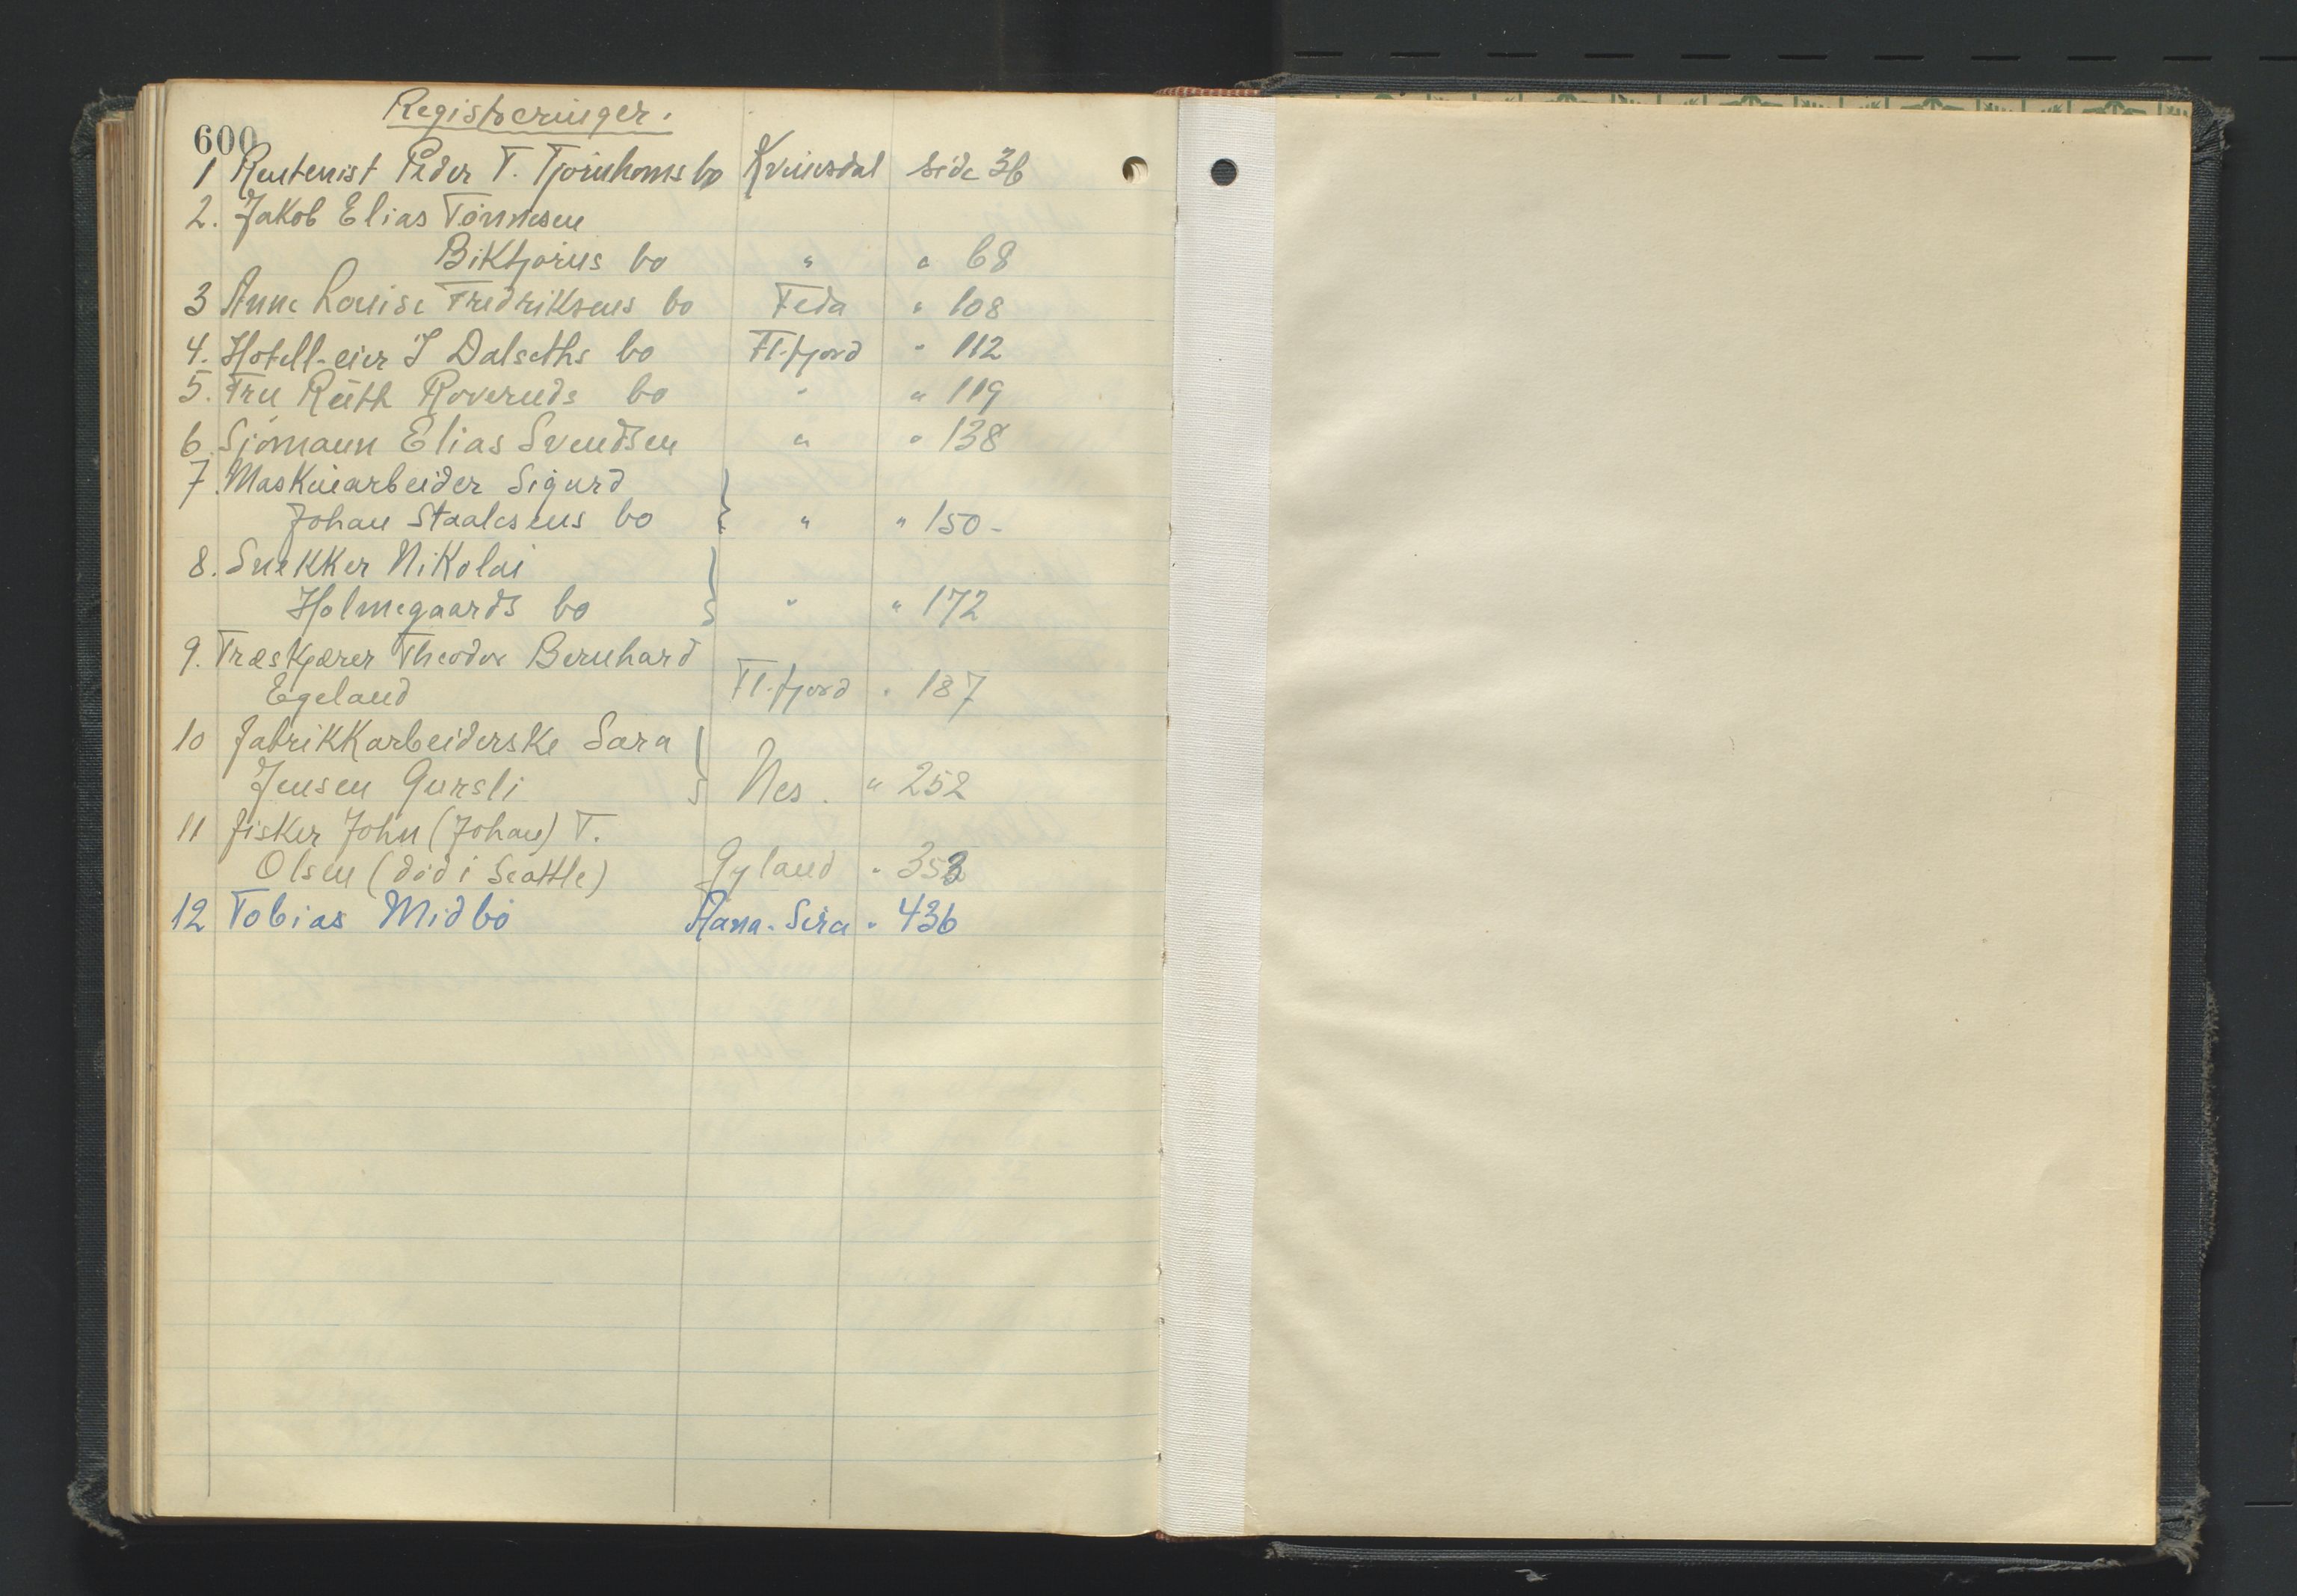 Registreringer.
600
1 Rentenist Peder T. Tjørnhoms bo Kvinesdal side 36
2. Jakob Elias Tønnesen
Biktjørns bo " " 68
3 Anne Louise Fredriksens bo Feda " 108
4. Hotell-eier J Dalseths bo Fl.fjord " 112
5. Fru Ruth Roveruds bo " " 119
6. Sjømann Elias Svendsen " " 138
7. Maskinarbeider Sigurd
Johan Staalesens bo " " 150-
8. Snekker Nikolai
Holmegaards bo " " 172
9. Træskjærer Theodor Bernhard
Egeland Fl.fjord " 187
10 Fabrikkarbeiderske Sara
Jensen Gursli Nes. " 252
11 Fisker John (Johan) T.
Olsen (død i Seattle) Gyland " 353
12 Tobias Midbø Åana-Sira " 436